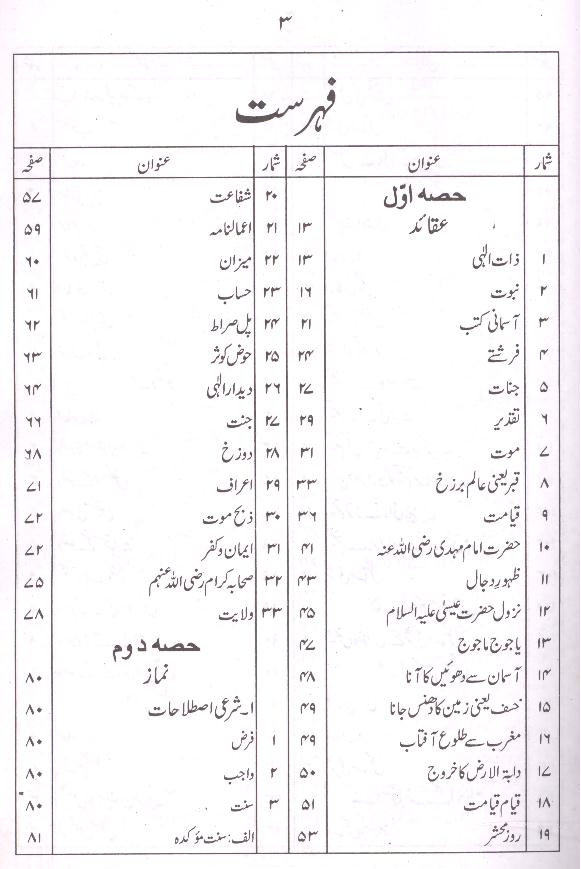 ۳
فہرست
شمار عنوان صفحہ
حصہ اوّل
عقائد ۱۳
۱ ذات الٰہی ۱۳
۲ نبوت ۱۶
۳ آسمانی کتب ۲۱
۴ فرشتے ۲۴
۵ جنات ۲۷
۶ تقدیر ۲۹
۷ موت ۳۱
۸ قبر یعنی عالم برزخ ۳۳
۹ قیامت ۳۶
۱۰ حضرت امام مہدی رضی اللہ عنہ ۴۱
۱۱ ظہورِ دجال ۴۳
۱۲ نزول حضرت عیسیٰ علیہ السلام ۴۵
۱۳ یاجوج ماجوج ۴۷
۱۴ آسمان سے دھوئیں کا آنا ۴۸
۱۵ خسف یعنی زمین کا دھنس جانا ۴۹
۱۶ مغرب سے طلوع آفتاب ۴۹
۱۷ دابۃ الارض کا خروج ۵۰
۱۸ قیام قیامت ۵۱
۱۹ روز محشر ۵۳
شمار عنوان صفحہ
۲۰ شفاعت ۵۷
۲۱ اعمالنامہ ۵۹
۲۲ میزان ۶۰
۲۳ حساب ۶۱
۲۴ پل صراط ۶۲
۲۵ حوض کوثر ۶۳
۲۶ دیدار الٰہی ۶۴
۲۷ جنت ۶۶
۲۸ دوزخ ۶۸
۲۹ اعراف ۷۱
۳۰ ذبح موت ۷۲
۳۱ ایمان و کفر ۷۲
۳۲ صحابہ کرام رضی اللہ عنہم ۷۵
۳۳ ولایت ۷۸
حصہ دوم
نماز ۸۰
۱۔شرعی اصطلاحات ۸۰
۱ فرض ۸۰
۲ واجب ۸۰
۳ سنت ۸۰
الف: سنت مؤکدہ ۸۱